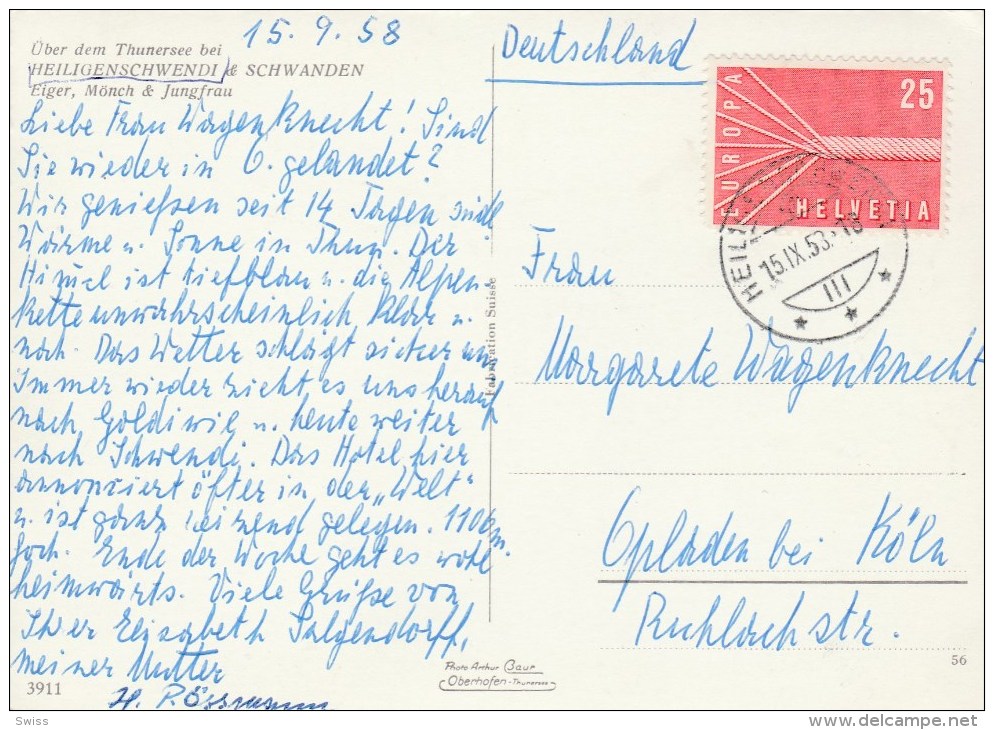 15. 9. 58
Über dem Thunersee bei
HEILIGENSCHWENDI & SCHWANDEN
Eiger, Mönch & Jungfrau
Liebe Frau Wagenknecht! Sind
Sie wieder in O. gelandet?
Wir genießen seit 14 Tagen
Wärme u. Sonne in Thun. Der
Himmel ist tiefblau u. die Alpen-
kette unwahrscheinlich klar u.
nah. Das Wetter schlägt sicher um
Immer wieder zieht es uns herauf
nach Goldiwil u. heute weiter
nach Schwendi. Das Hotel hier
annonciert öfter in der „Welt"
u. ist ganz reizend gelegen. 1100 m.
hoch. Ende der Woche geht es wohl
heimwärts. Viele Grüße von
Ihrer Elisabeth Salgendorff,
meiner Mutter
H. Rössmann
3911
Fabrication Suisse
Photo Arthur Baur
Oberhofen-Thunersee
Deutschland
EUROPA
25
HELVETIA
15.IX.58.-18
III
Frau
Margarete Wagenknecht
Opladen bei Köln
Ruhlachstr.
56
Swiss
www.delcampe.net